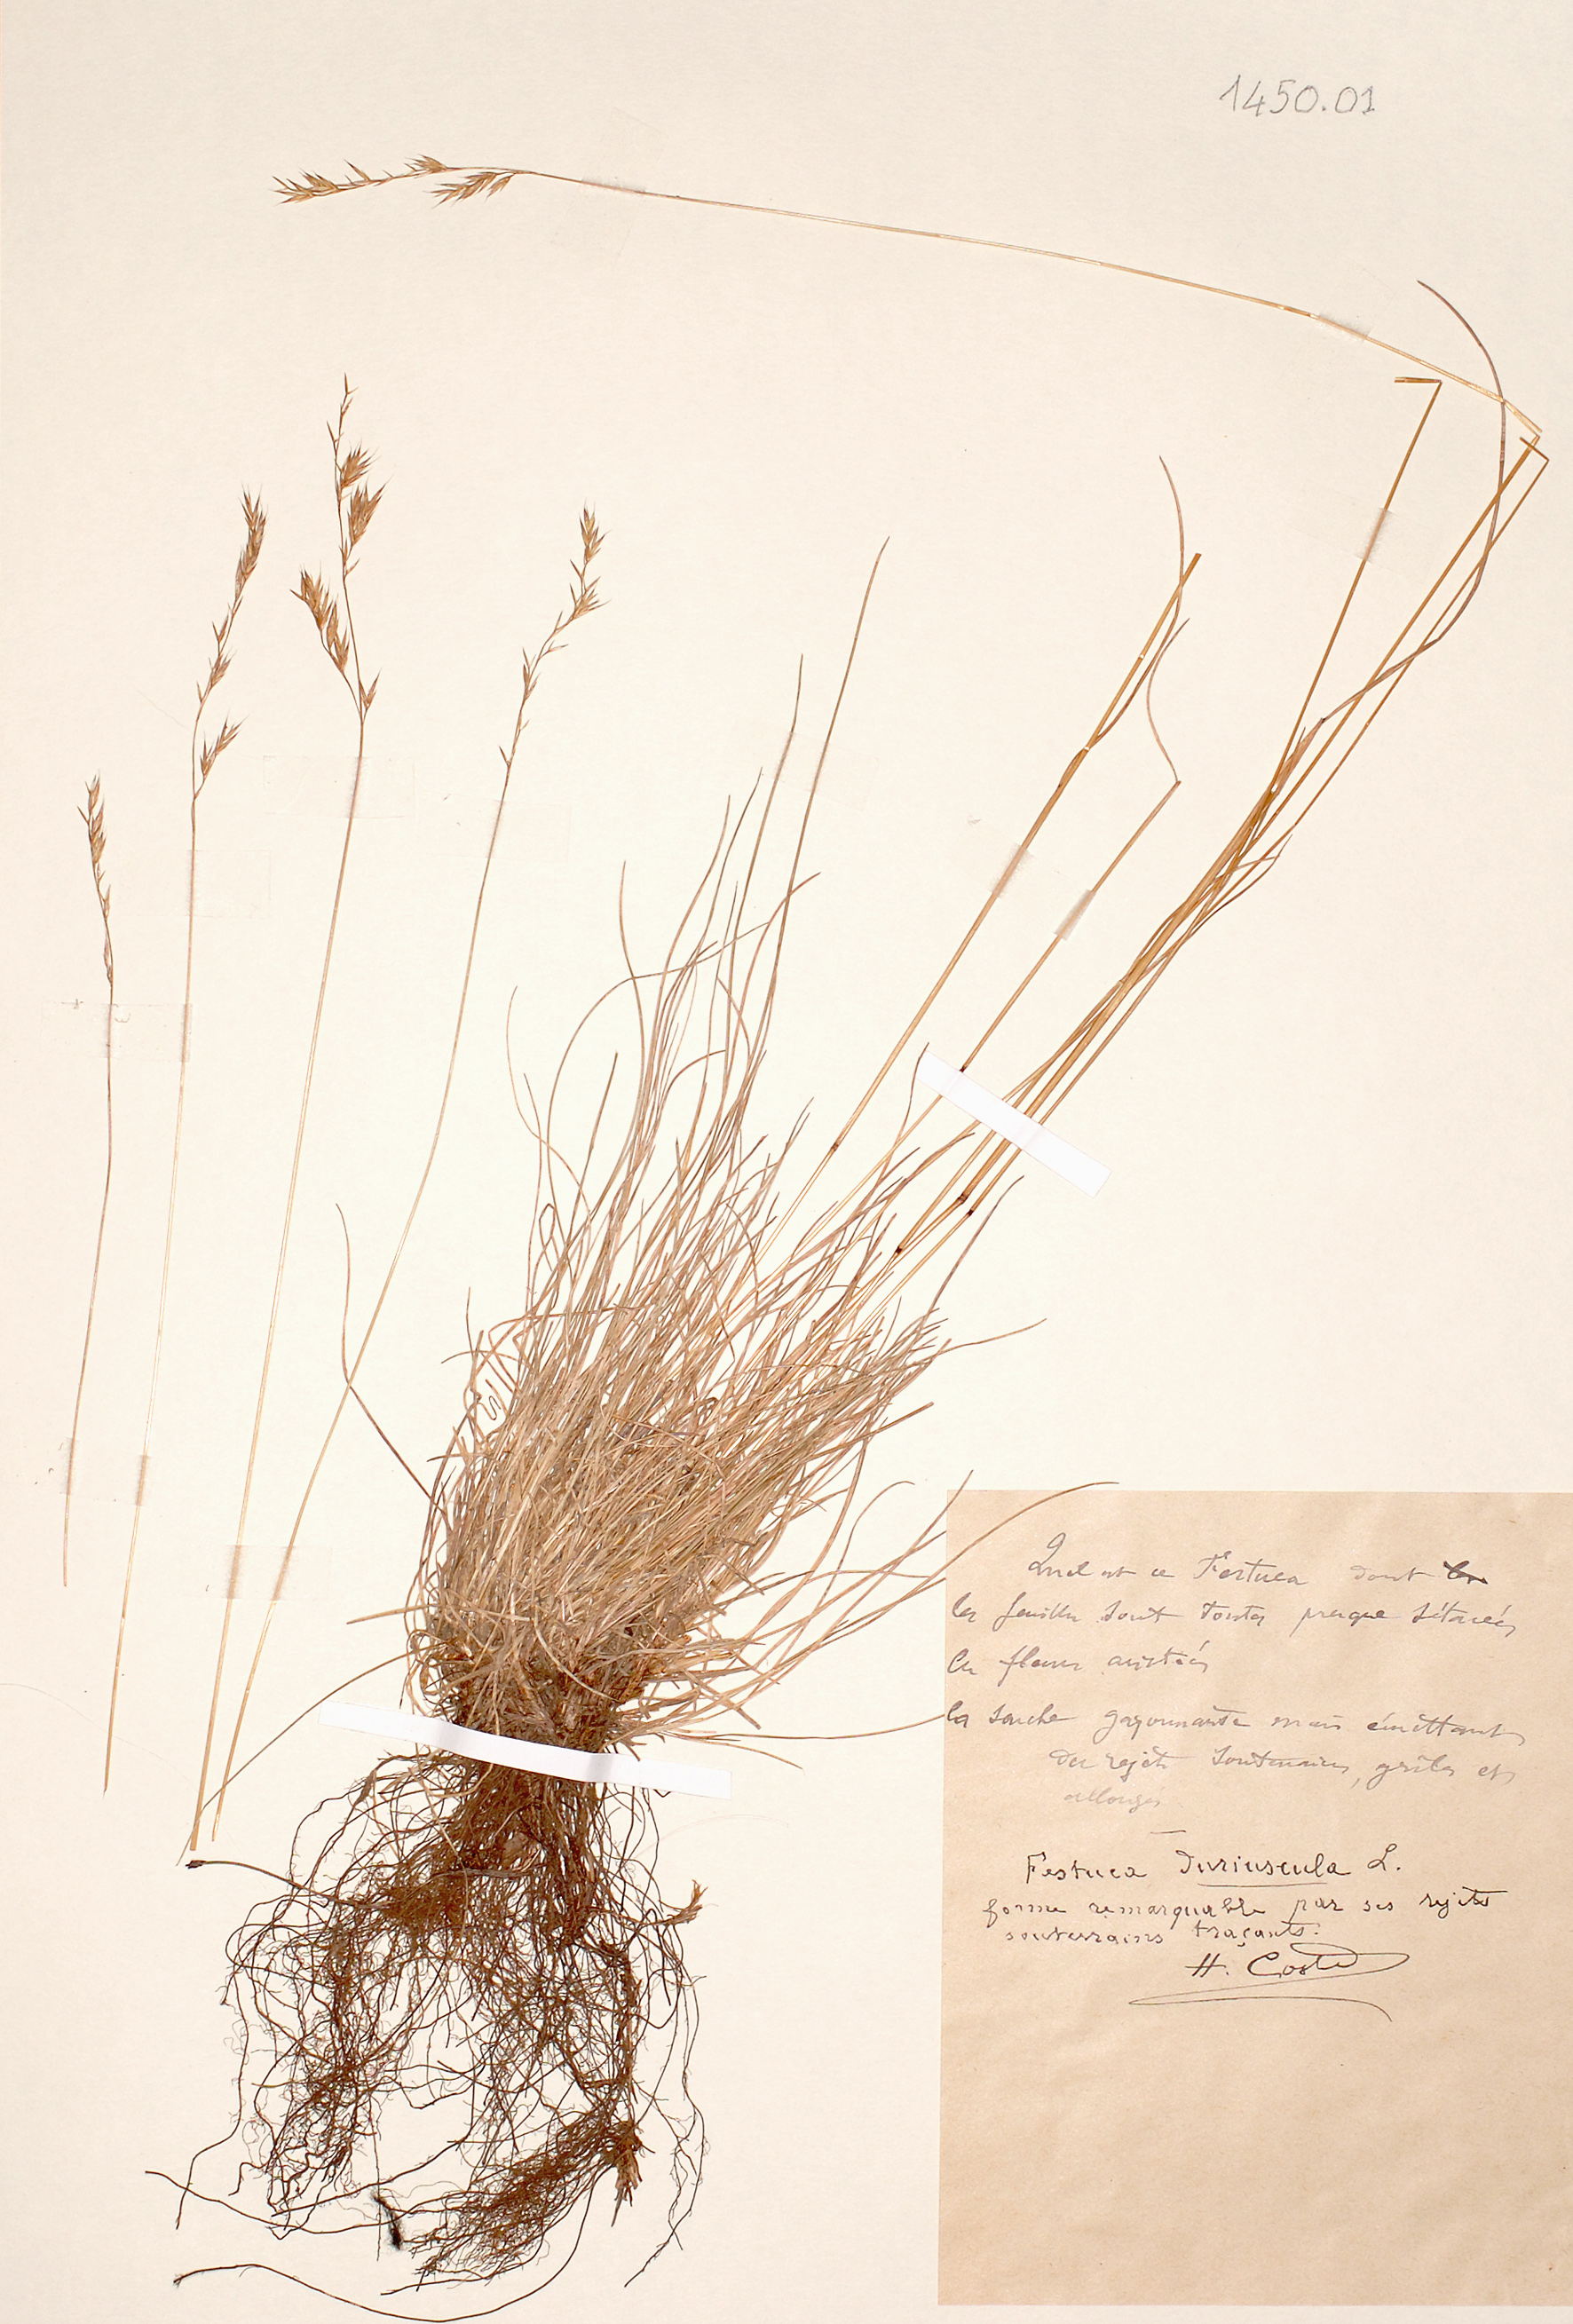 1450.01
Quel est ce Festuca dont
les feuilles sont toutes presque sétacées
les fleurs aristées
la souche gazonnante mais émettant
des rejets souterrains, grêles et
allongés
Festuca duriuscula L.
forme remarquable par ses rejets
souterrains traçants.
H. Coste